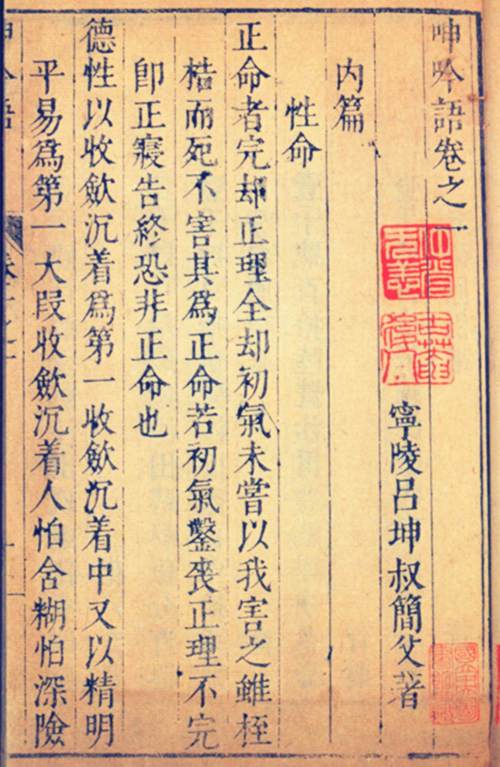 呻吟語卷之一
寧陵呂坤叔簡父著
内篇
性命
正命者完却正理全却初氣未嘗以我害之雖桎
梏而死不害其為正命若初氣鑿喪正理不完
卽正寢告終恐非正命也
德性以收斂沉着為第一收斂沉着中又以精明
平易為第一大段收斂沉着人怕含糊怕深險